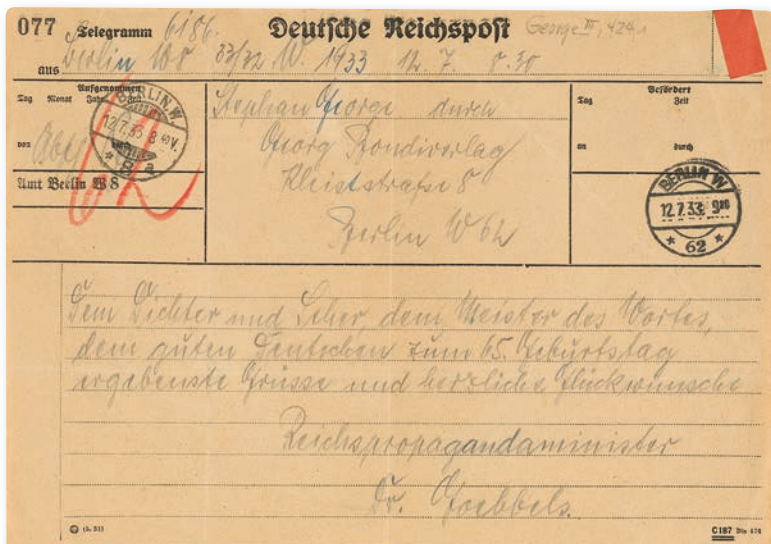 077 Telegramm 6186. Deutsche Reichspost George III, 424,1
aus Berlin W8 33/32 W. 1933 12. 7. 8.30
Aufgenommen
Tag Monat Jahr Zeit
von
Amt Berlin W 8
BERLIN W.
12.7.33. 8 40 V.
* 8 a
Stephan George durch
Georg Bondiverlag
Kleiststrasse 8
Berlin W 62
Befördert
Tag Zeit
an durch
BERLIN W
12.7.33. 9 20
* 62 *
Dem Dichter und Seher, dem Meister des Wortes,
dem guten Deutschen zum 65. Geburtstag
ergebenste Grüsse und herzliche Glückwünsche
Reichspropagandaminister
Dr. Goebbels.
C187 Din 476